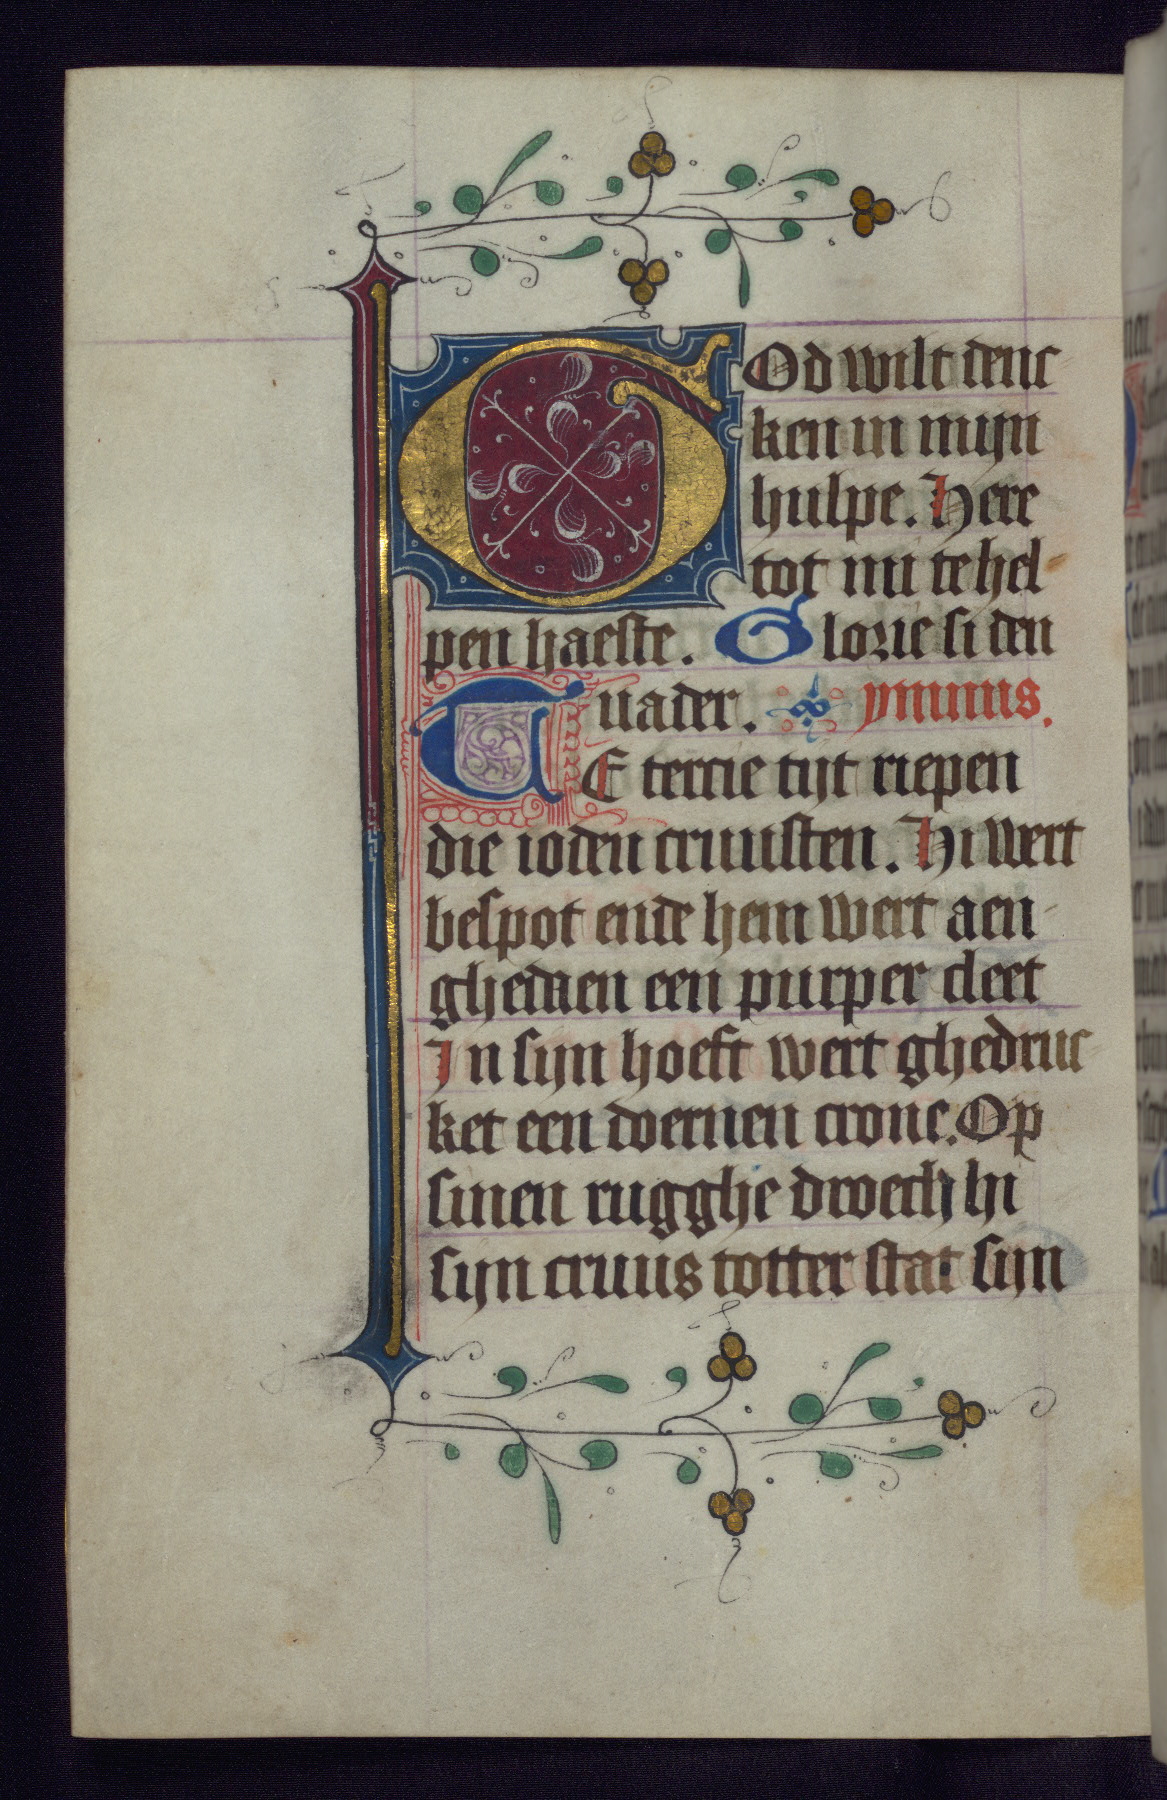 GOd wilt denc
ken in mijn
hulpe. Here
tot mi te hel-
pen haeste. Glorie si den
uader. ymnus.
TE tercie tijt riepen
die ioden cruusten. Hi wert
bespot ende hem wert aen-
ghedaen een purper cleet
In sijn hoeft wert ghedruc-
ket een doernen crone. Op
sinen rugghe droech hi
sijn cruus totter stat sijn